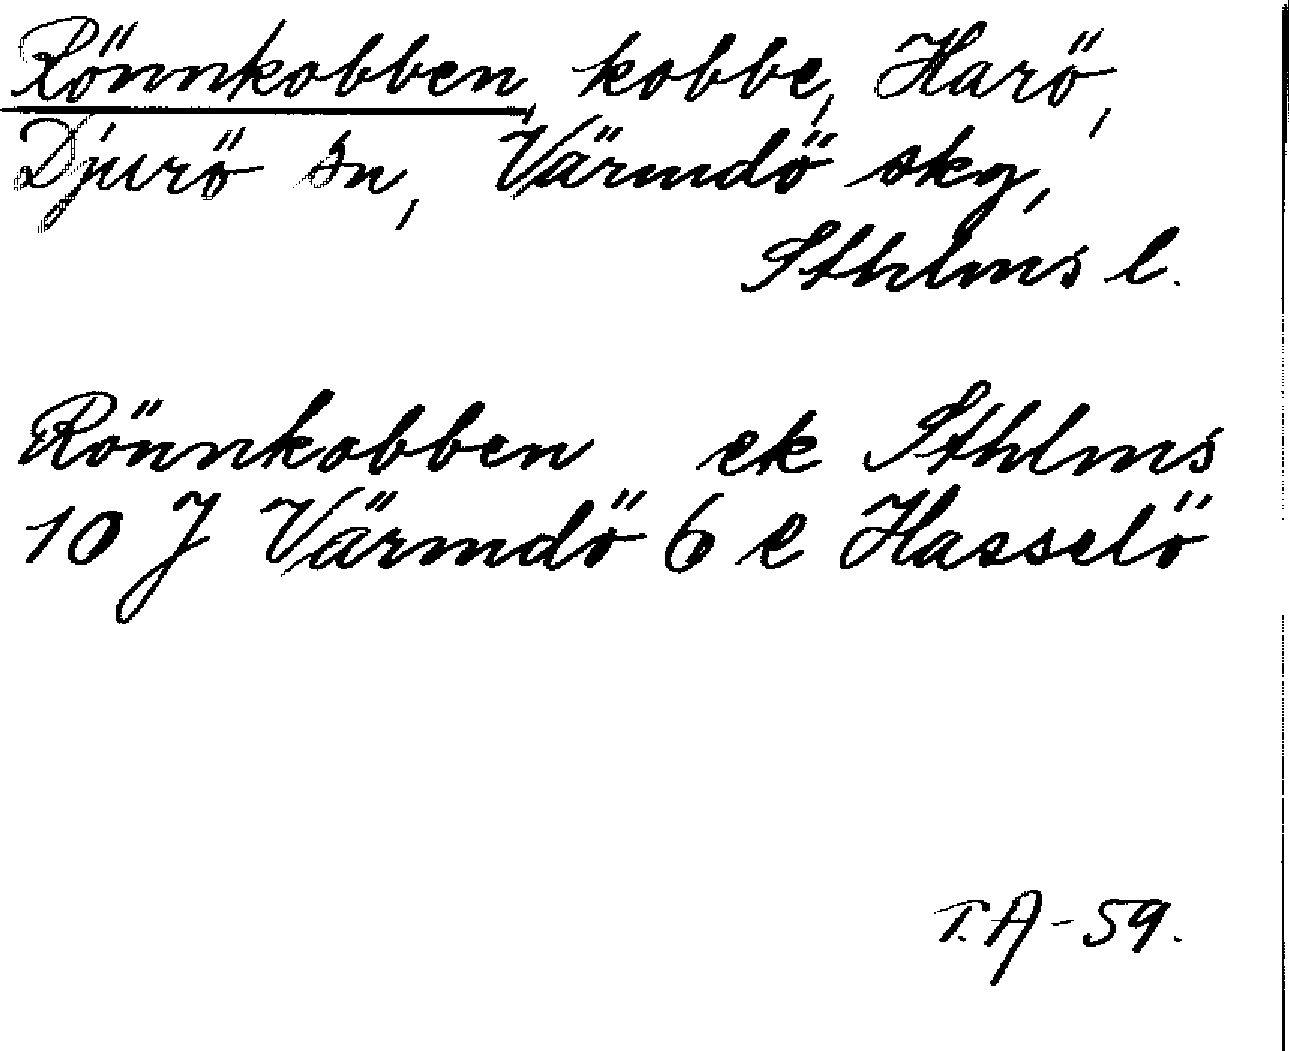 Rönnkobben, kobbe, Harö,
Djurö sn, Värmdö skg,
Sthlms l.
Rönnkobben ek Sthlms
10 J Värmdö 6 e Hasselö
T.A-59.